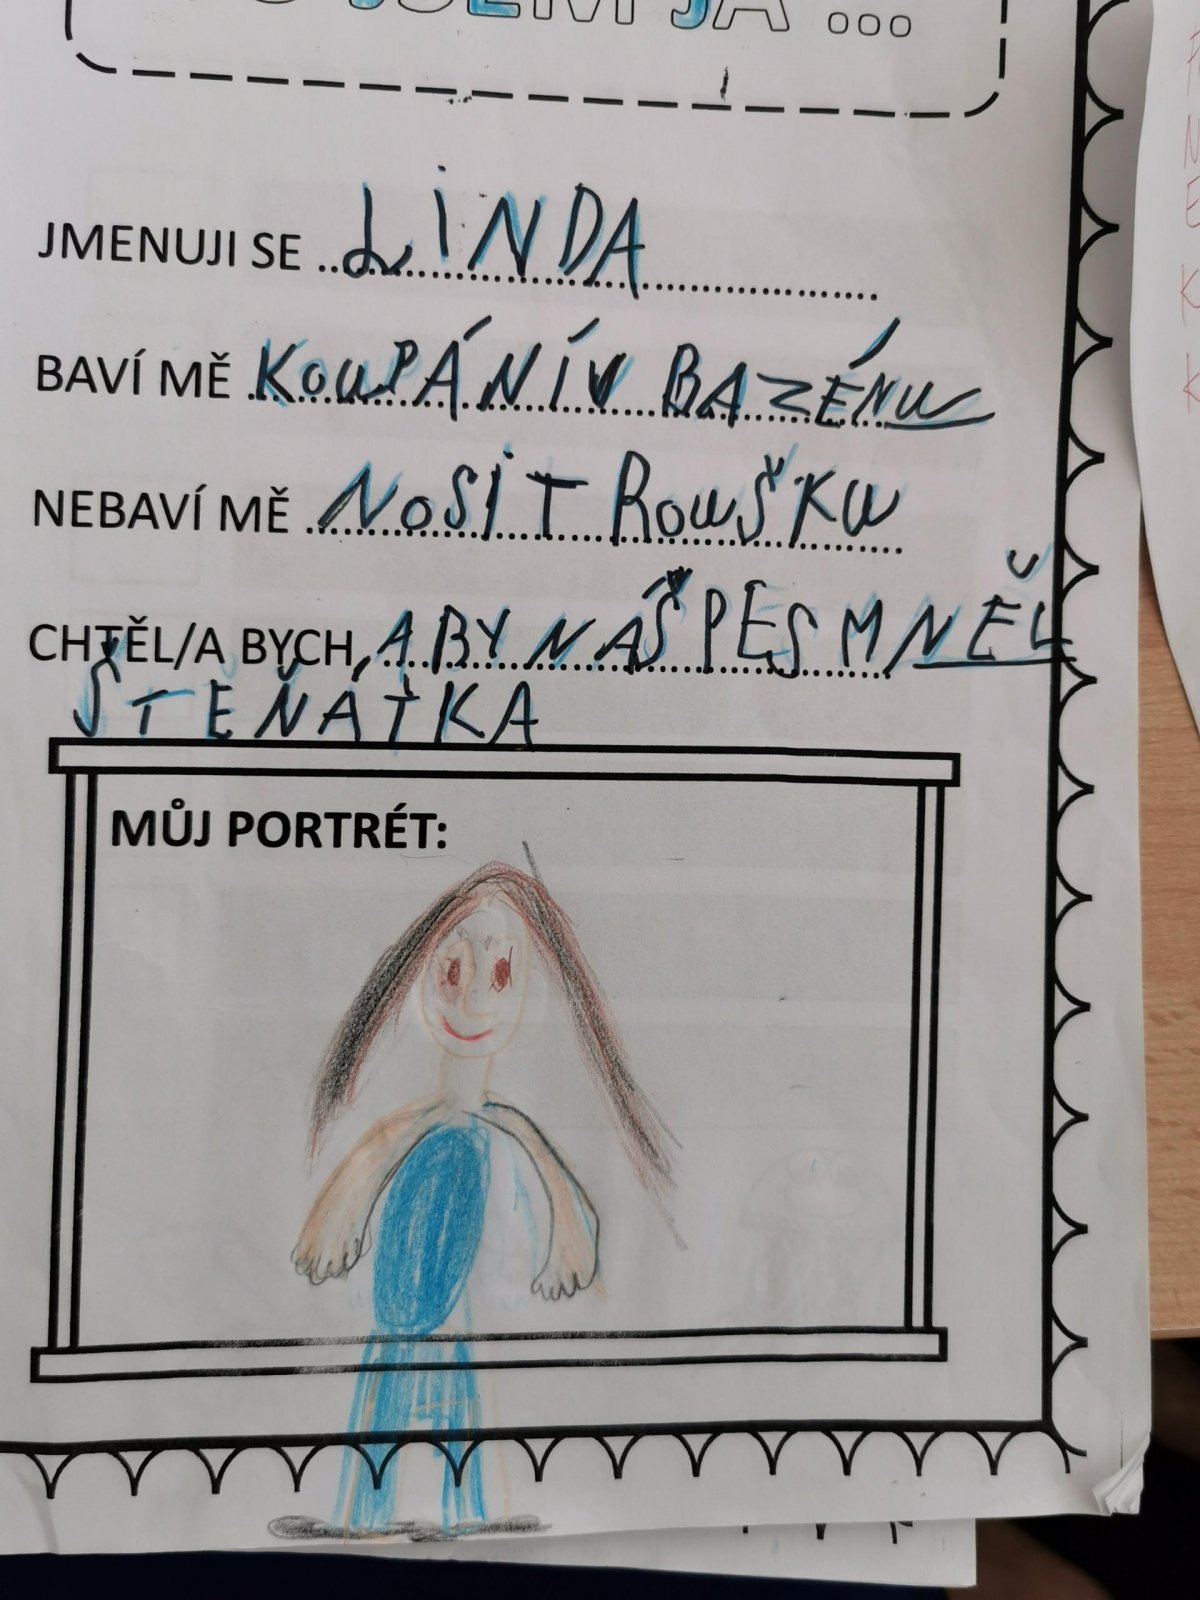 JSEM JÁ ...
JMENUJI SE LINDA
BAVÍ MĚ KOUPÁNÍ V BAZÉNU
NEBAVÍ MĚ NOSIT ROUŠKU
CHTĚL/A BYCH, ABY NÁŠ PES MNĚL
ŠTEŇÁTKA
MŮJ PORTRÉT: